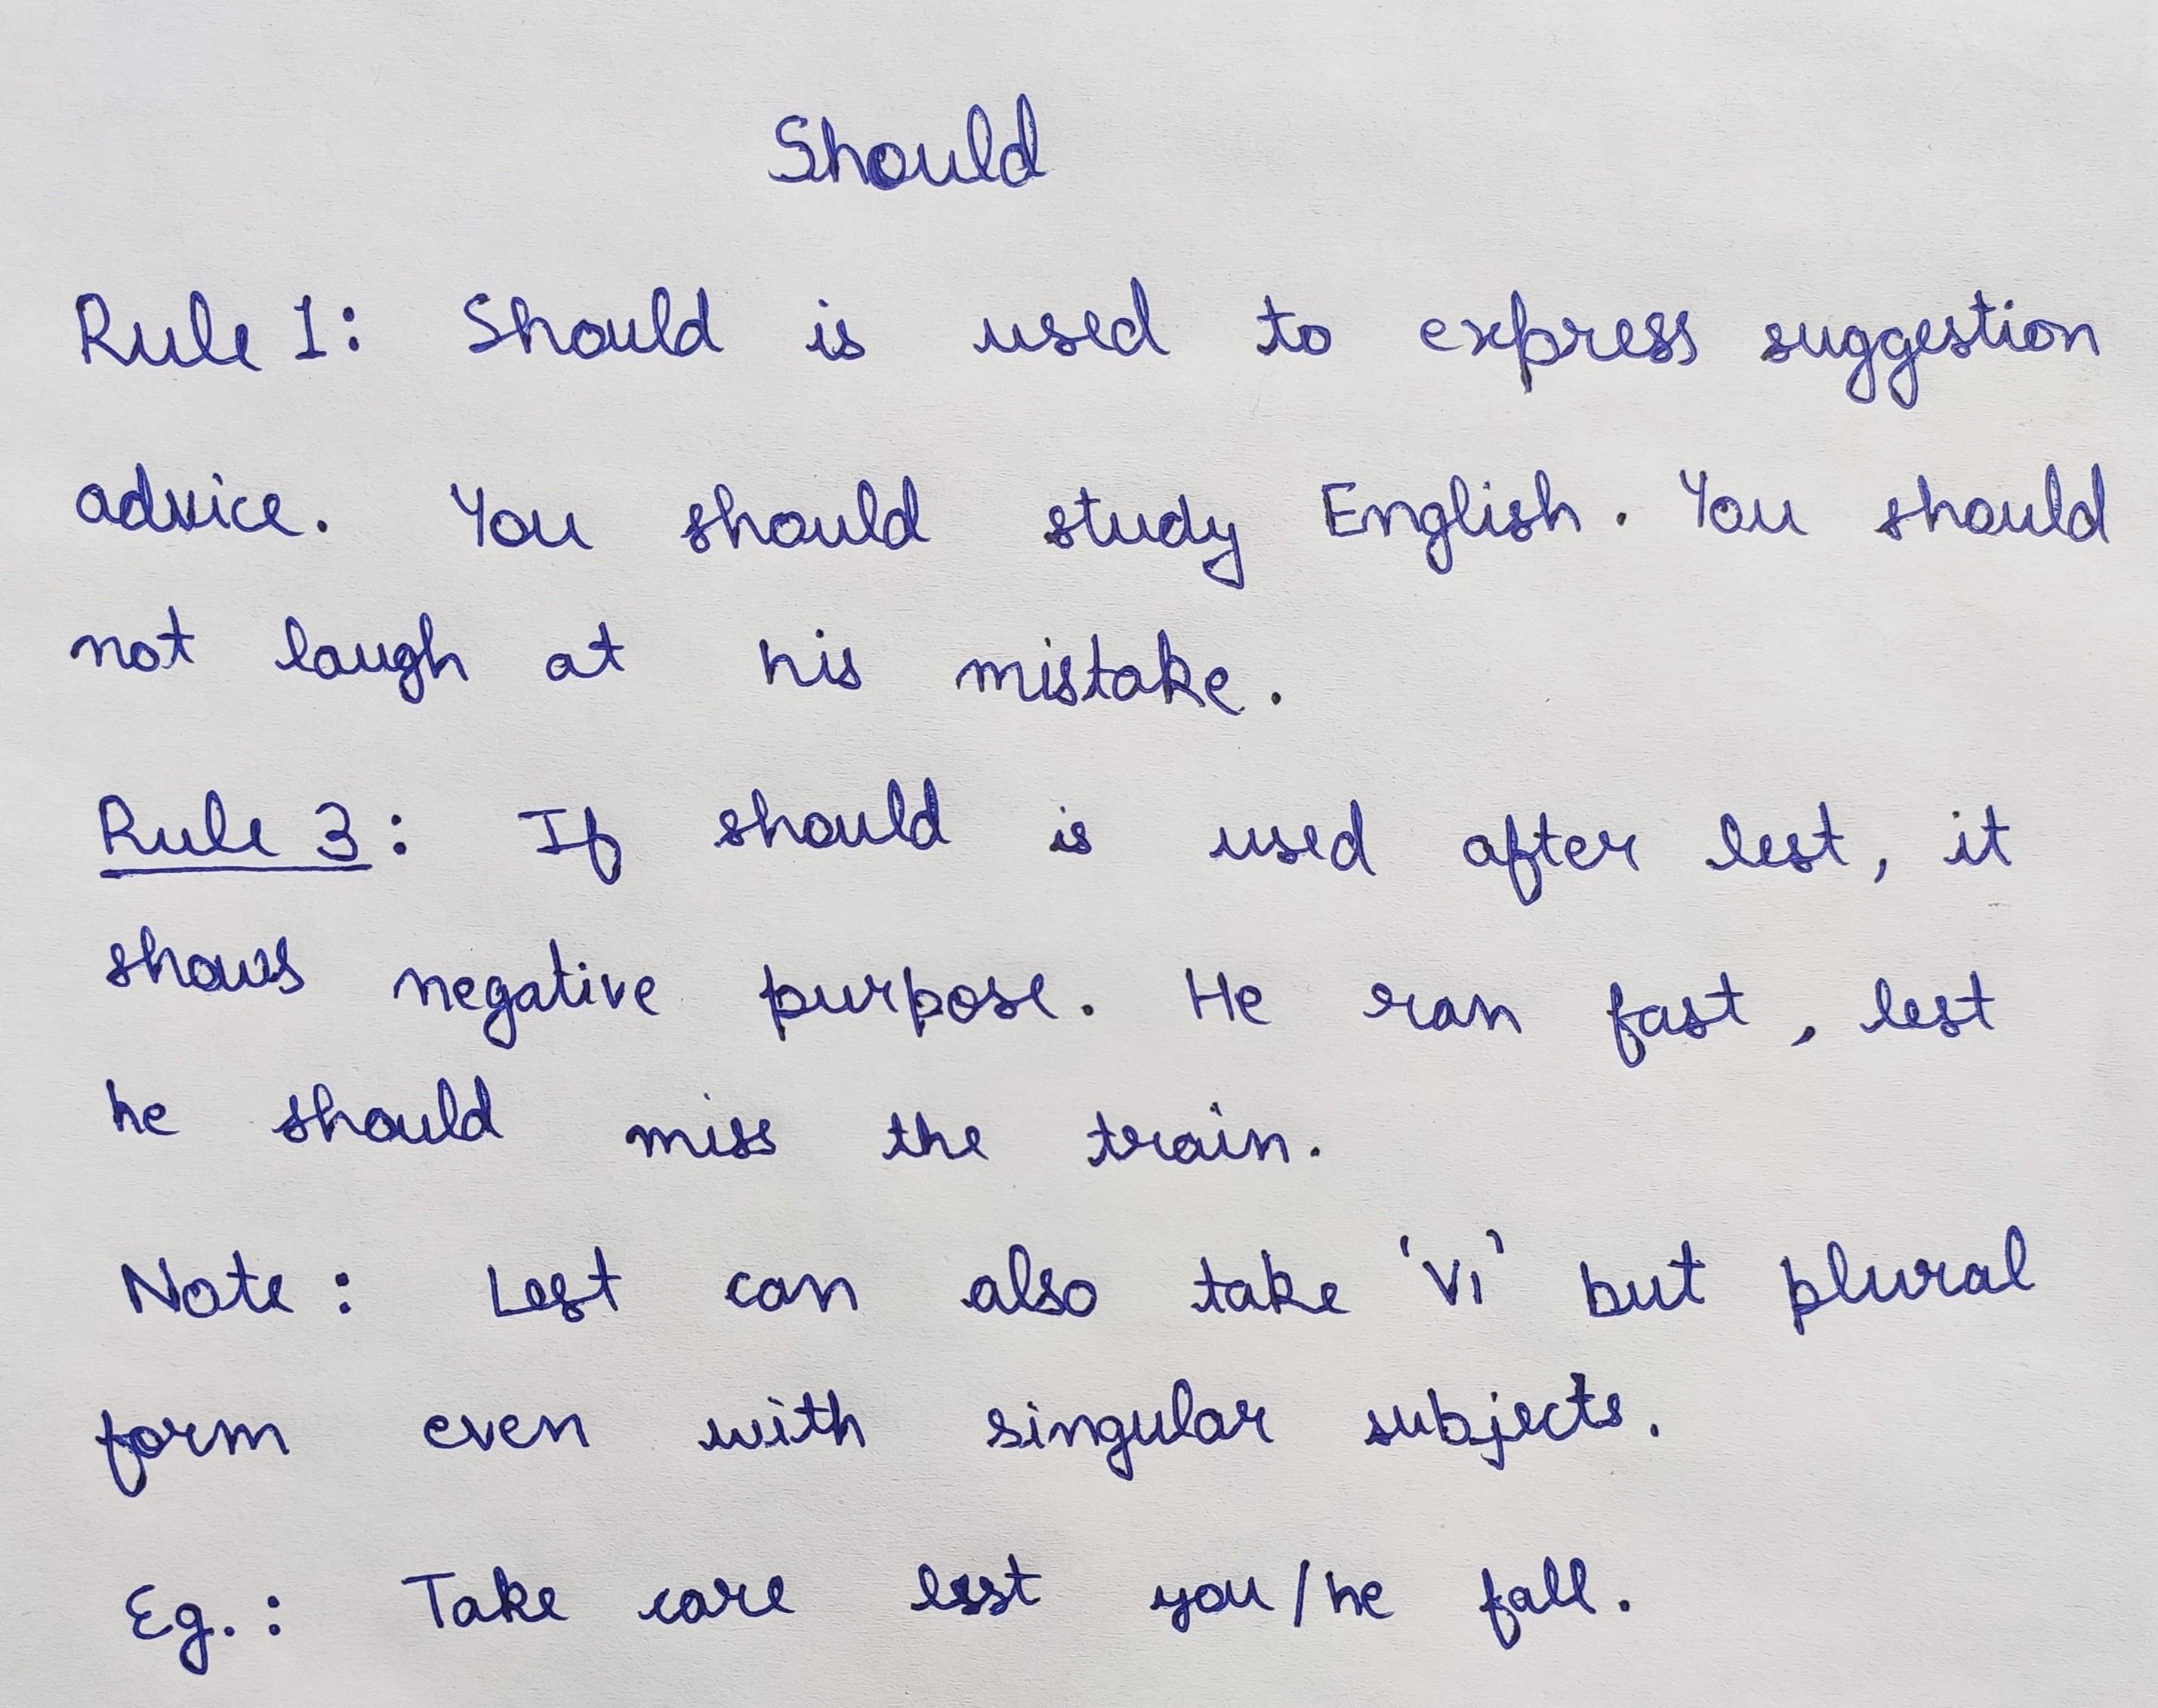 Should
Rule 1: Should is used to express suggestion
advice. You should study English. You should
not laugh at his mistake.
Rule 3: If should is used after lest, it
shows negative purpose. He ran fast, lest
he should miss the train.
Note: Lest can also take 'V1' but plural
form even with singular subjects.
Eg.: Take care lest you/he fall.